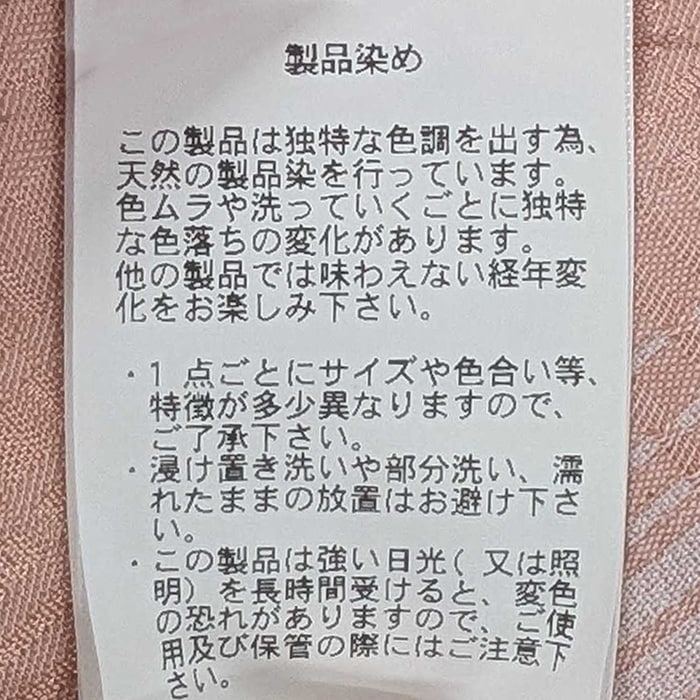 製品染め
この製品は独特な色調を出す為、
天然の製品染を行っています。
色ムラや洗っていくごとに独特
な色落ちの変化があります。
他の製品では味わえない経年変
化をお楽しみ下さい。
・1 点ごとにサイズや色合い等、
特徴が多少異なりますので、
ご了承下さい。
・浸け置き洗いや部分洗い、濡
れたままの放置はお避け下さ
い。
・この製品は強い日光( 又は照
明) を長時間受けると、変色
の恐れがありますので、ご使
用及び保管の際にはご注意下
さい。